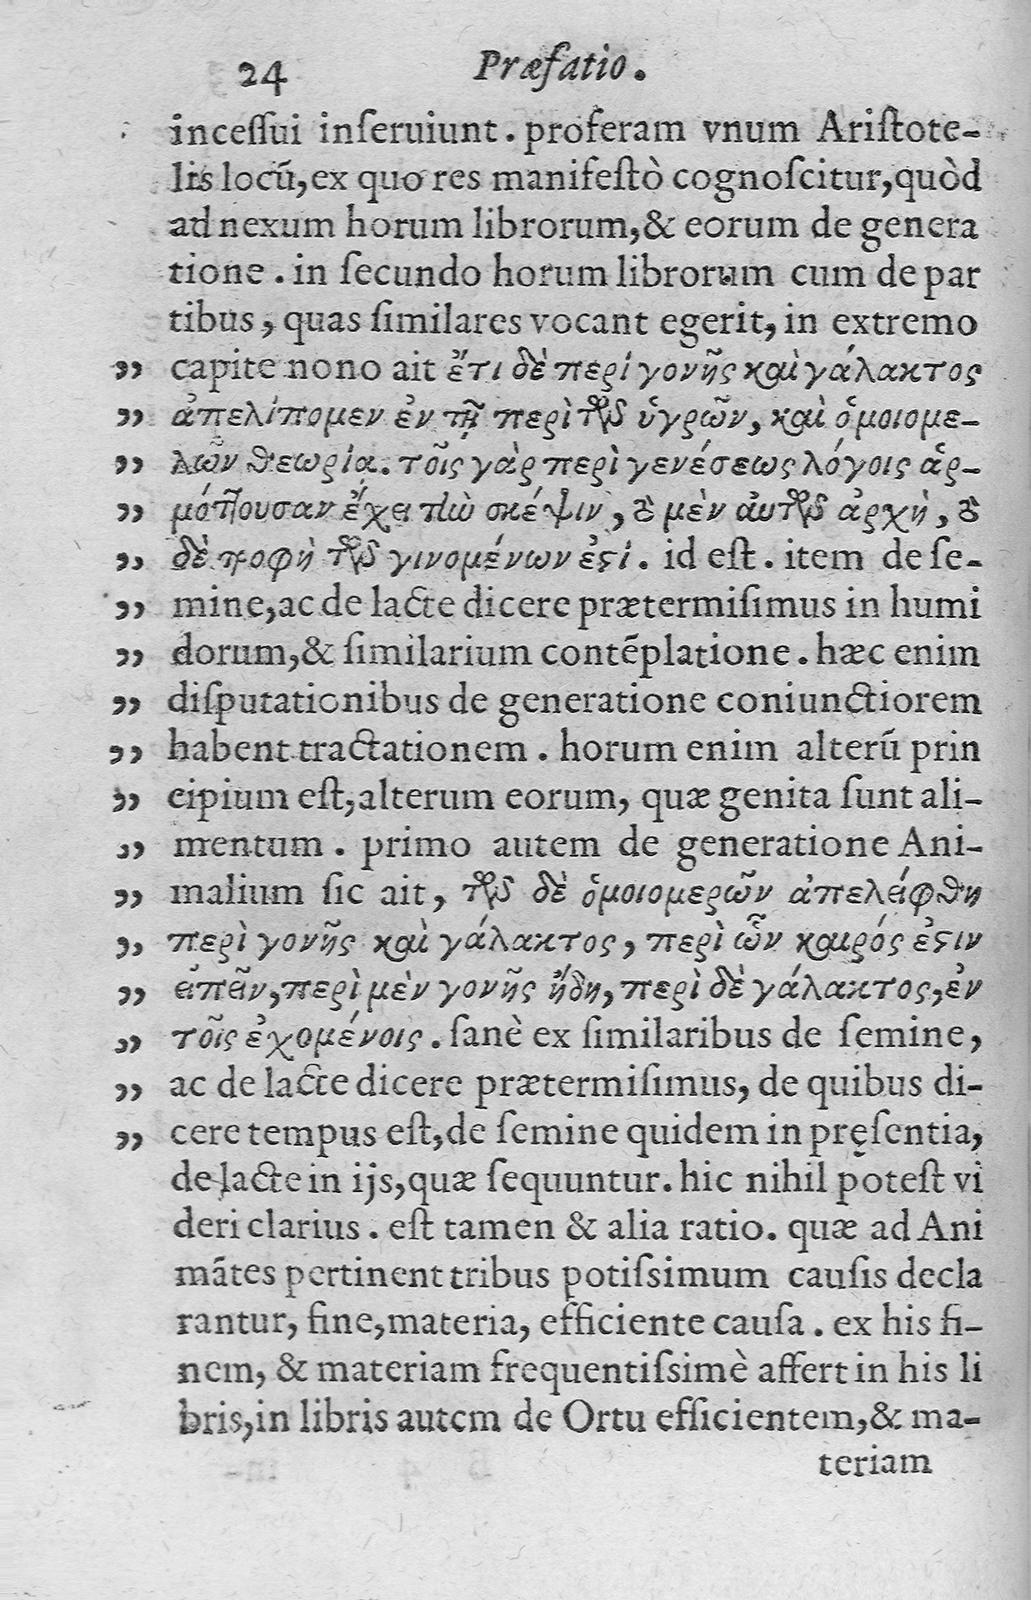 24 Præfatio.
incessui inseruiunt. proferam vnum Aristote-
lis locũ, ex quo res manifestò cognoscitur, quòd
ad nexum horum librorum, & eorum de genera
tione. in secundo horum librorum cum de par
tibus, quas similares vocant egerit, in extremo
” capite nono ait ἔτι δὲ περί γονῆς καὶ γάλακτος
” ἀπελίπομεν ἐν τῇ περὶ τῶν ὑγρῶν, καὶ ὁμοιομε-
” λῶν θεωρίᾳ. τοῖς γὰρ περὶ γενέσεως λόγοις ἁρ-
” μότ̔ουσαν ἔχει τὴν σκέψιν, ὁ μὲν αὐτῶν ἀρχὴ, ὁ
” δὲ τροφὴ τῶν γινομένων ἐστί. id est. item de se-
” mine, ac de lacte dicere prætermisimus in humi
” dorum, & similarium contẽplatione. hæc enim
” disputationibus de generatione coniunctiorem
” habent tractationem. horum enim alterũ prin
” cipium est, alterum eorum, quæ genita sunt ali-
” mentum. primo autem de generatione Ani-
” malium sic ait, τῶν δὲ ὁμοιομερῶν ἀπελείφθη
” περὶ γονῆς καὶ γάλακτος, περὶ ὧν καιρός ἐστιν
” εἰπεῖν, περὶ μὲν γονῆς ἤδη, περὶ δὲ γάλακτος, ἐν
” τοῖς ἐχομένοις. sanè ex similaribus de semine,
” ac de lacte dicere prætermisimus, de quibus di-
” cere tempus est, de semine quidem in pręsentia,
de lacte in ijs, quæ sequuntur. hic nihil potest vi
deri clarius. est tamen & alia ratio. quæ ad Ani
mãtes pertinent tribus potissimum causis decla
rantur, fine, materia, efficiente causa. ex his fi-
nem, & materiam frequentissimè affert in his li
bris, in libris autem de Ortu efficientem, & ma-
teriam